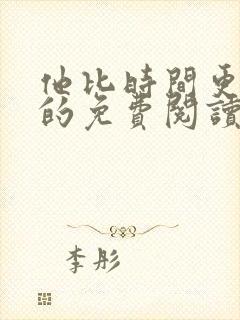 他比時間更
的免費閱讀
李彤